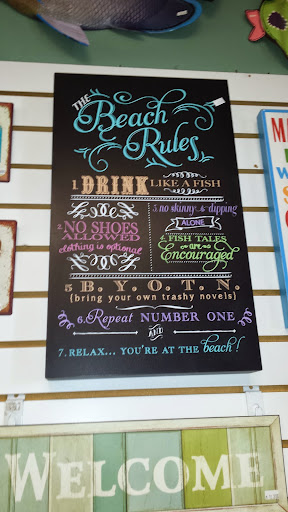 THE
Beach
Rules
1. DRINK LIKE A FISH
2. NO SHOES
ALLOWED
clothing is optional
3. no skinny dipping
ALONE
4. FISH TALES
are
Encouraged
5 B.Y.O.T.N.
(bring your own trashy novels)
6. Repeat NUMBER ONE
AND
7. RELAX... YOU'RE AT THE beach!
WELCOME